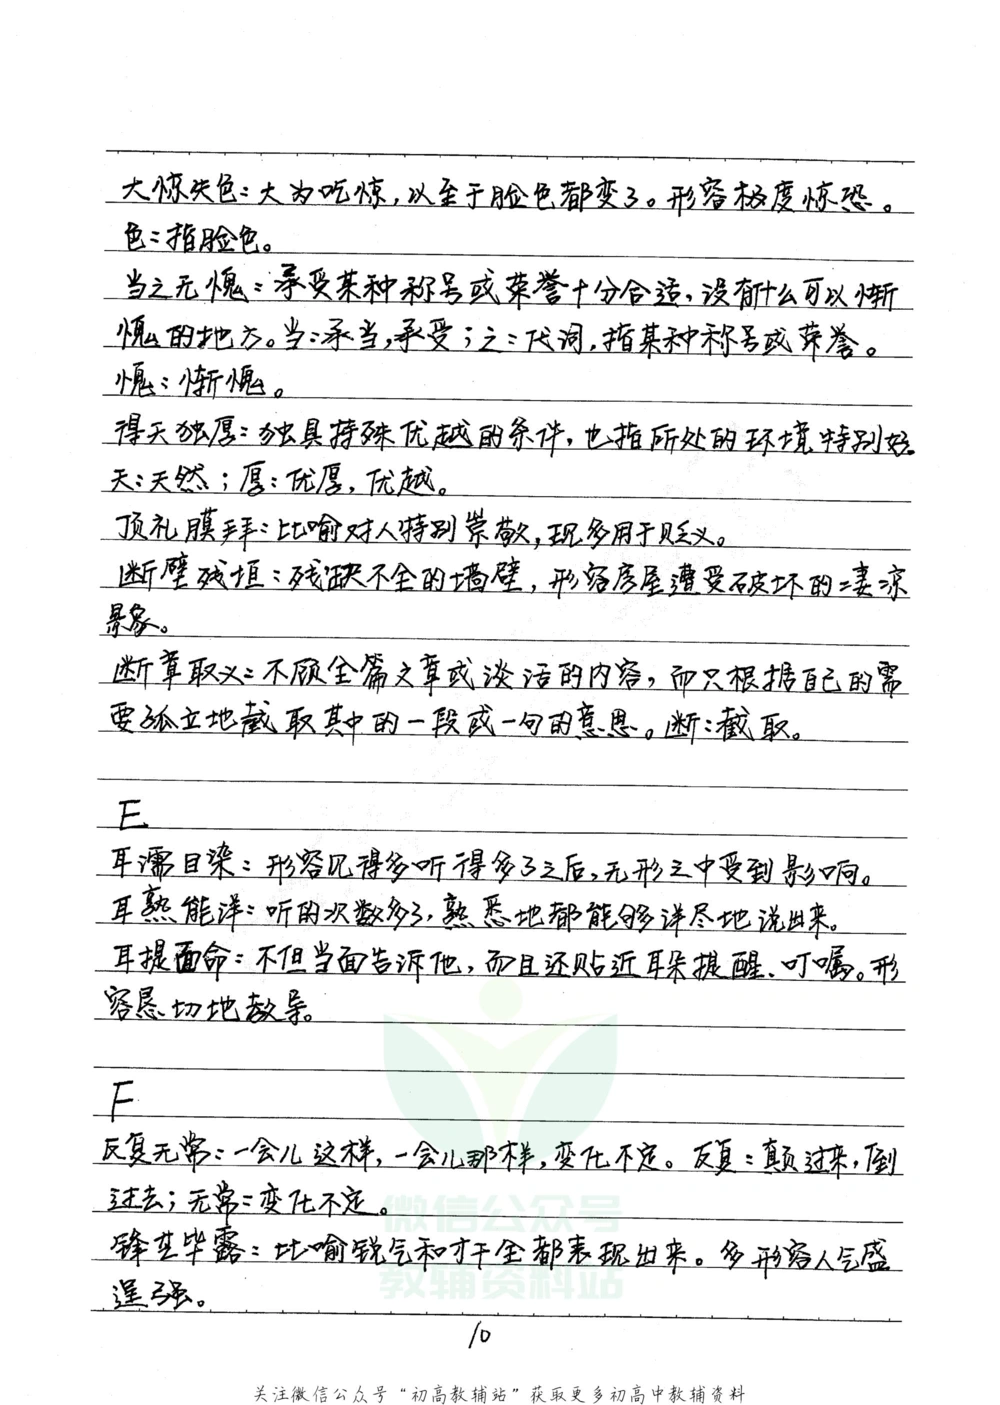 大惊失色：大为吃惊，以至于脸色都变了。形容极度惊恐。
色：指脸色。
当之无愧：承受某种称号或荣誉十分合适，没有什么可以惭
愧的地方。当：承当，承受；之：代词，指某种称号或荣誉。
愧：惭愧。
得天独厚：独具特殊优越的条件，也指所处的环境特别好。
天：天然；厚：优厚，优越。
顶礼膜拜：比喻对人特别崇敬，现多用于贬义。
断壁残垣：残缺不全的墙壁，形容房屋遭受破坏的凄凉
景象。
断章取义：不顾全篇文章或谈话的内容，而只根据自己的需
要孤立地截取其中的一段或一句的意思。断：截取。
E
耳濡目染：形容见得多听得多了之后，无形之中受到影响。
耳熟能详：听的次数多了，熟悉地都能够详尽地说出来。
耳提面命：不但当面告诉他，而且还贴近耳朵提醒、叮嘱。形
容恳切地教导。
F
反复无常：一会儿这样，一会儿那样，变化不定。反复：颠过来，倒
过去；无常：变化不定。
锋芒毕露：比喻锐气和才干全都表现出来。多形容人气盛
逞强。
微信公众号
教辅资料站
10
关注微信公众号“初高教辅站”获取更多初高中教辅资料